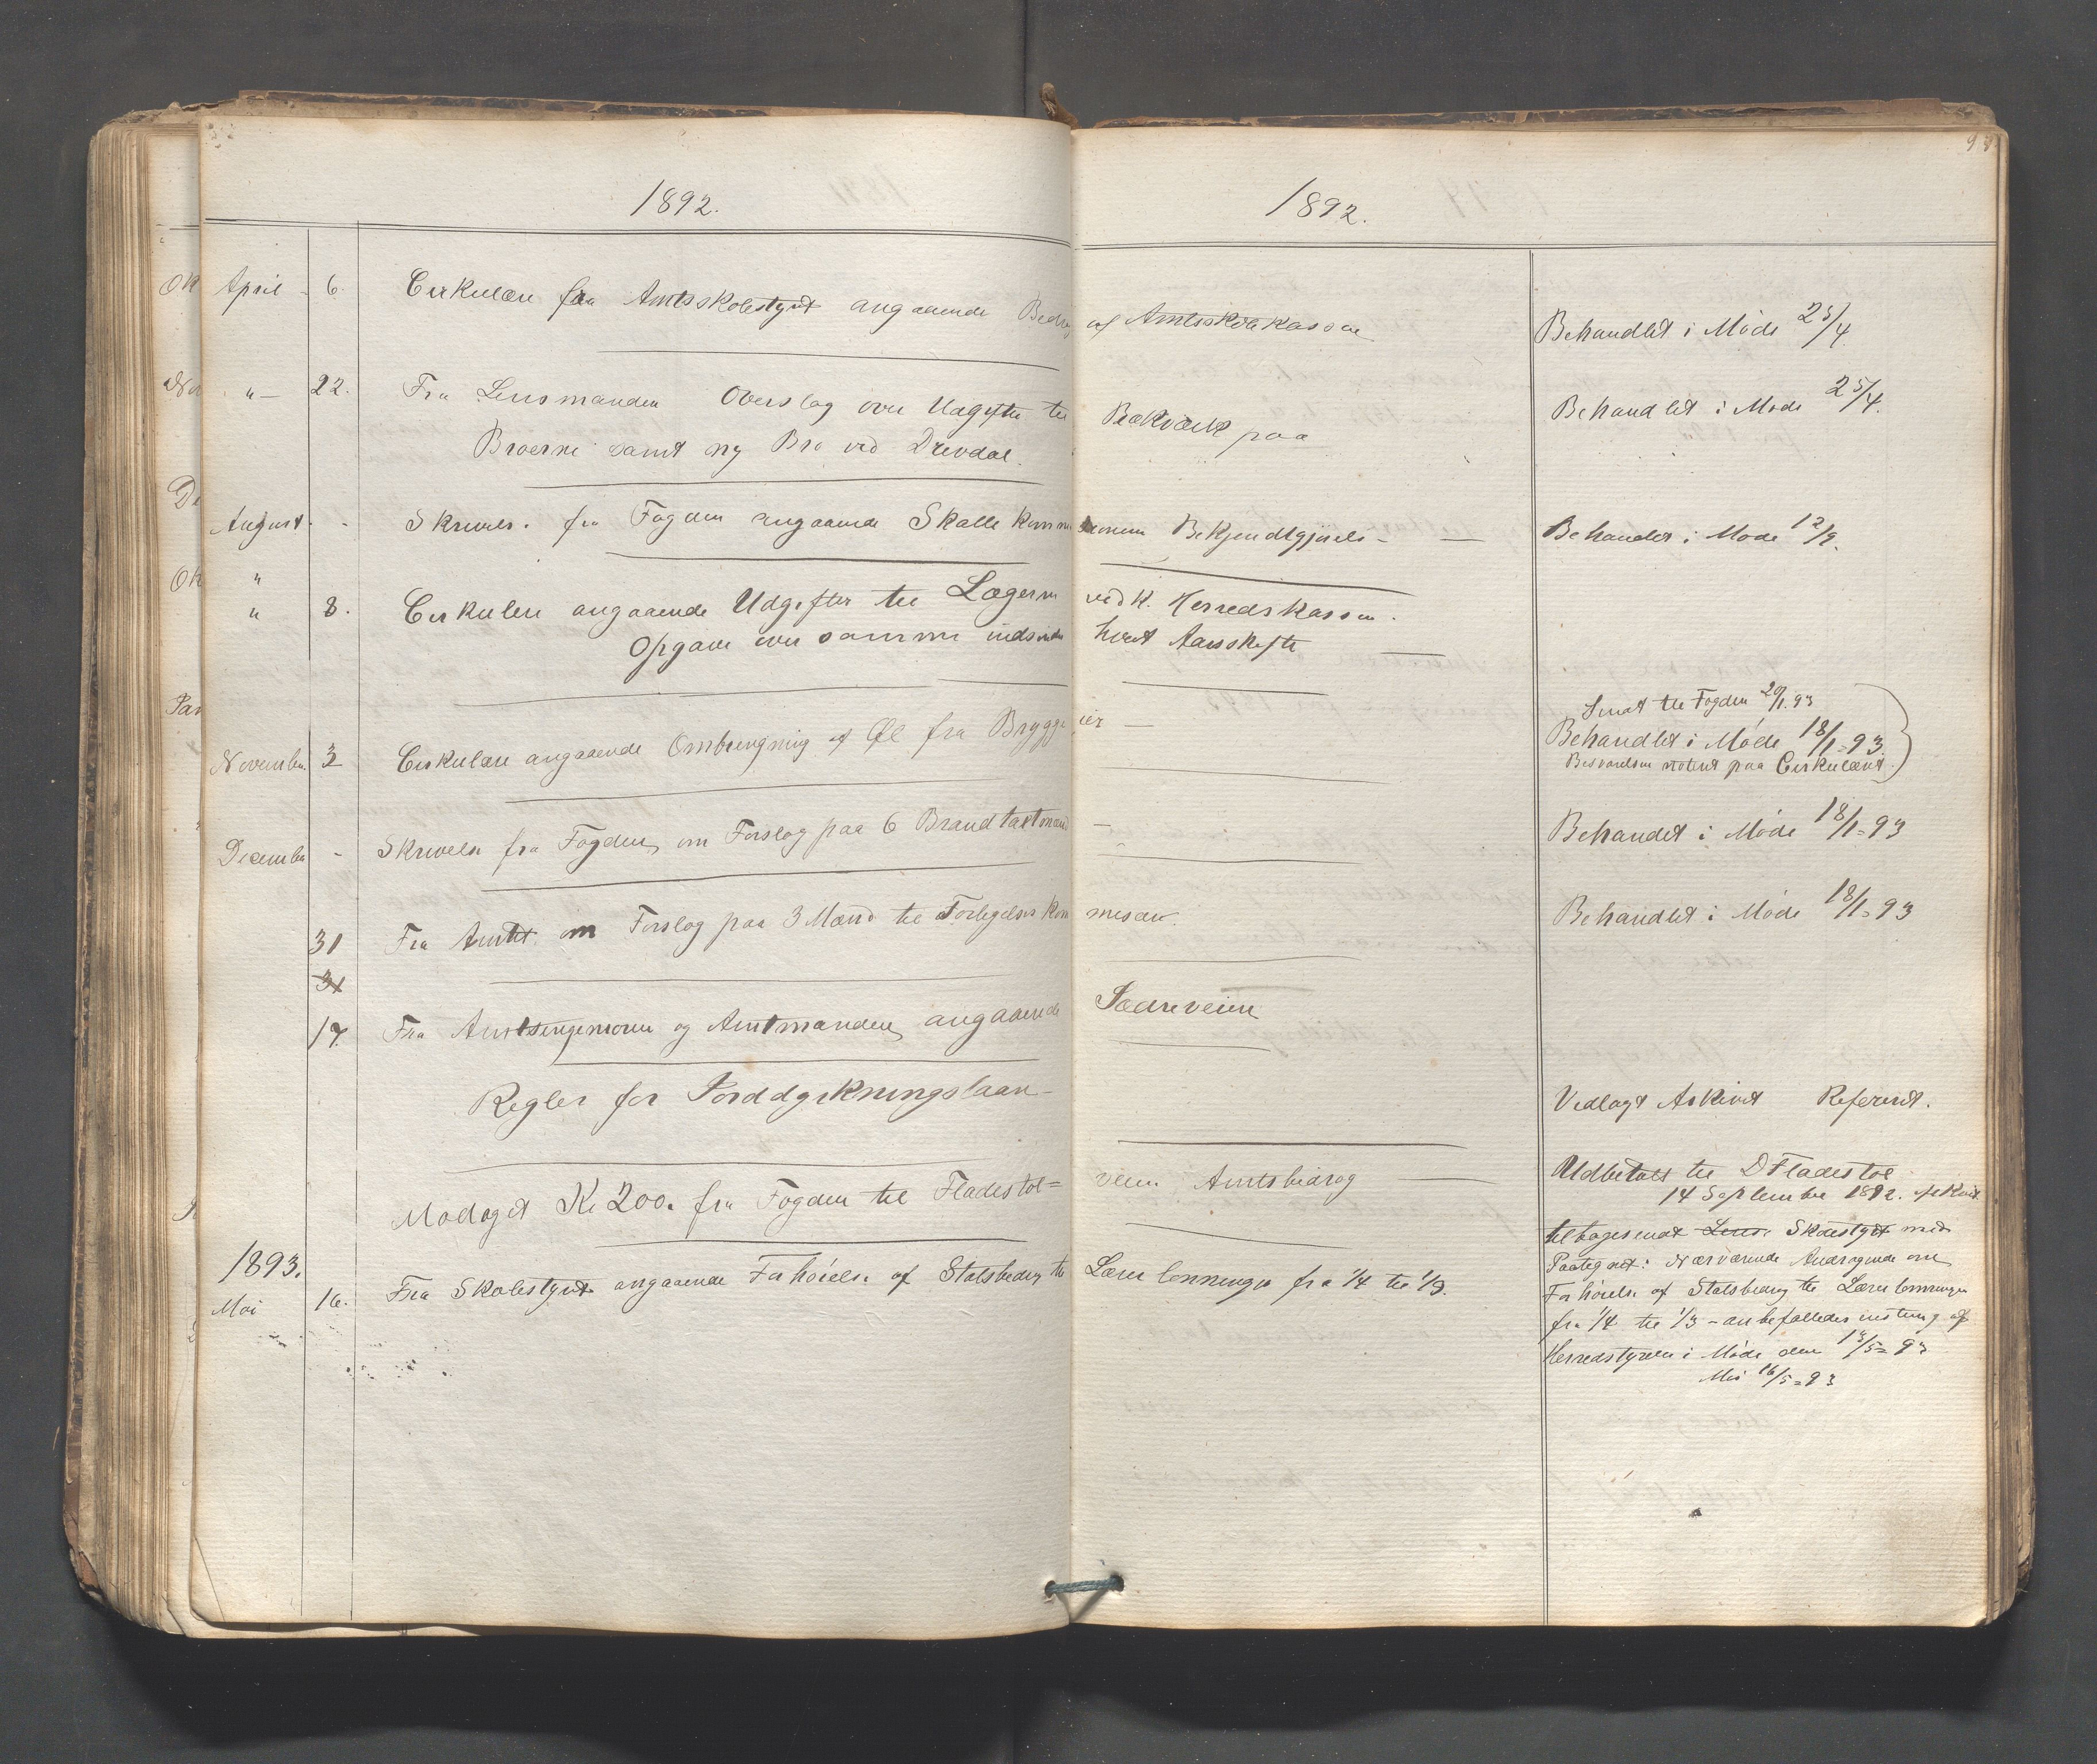 1892.
1892.
April 6. Cirkulære fra Amtsskolestyret angaaende Bidrag af Amtsskolekassen Behandlet i Møde 25/4.
" — 22. Fra Lensmanden Overslag over Udgifter til Rækværk paa Behandlet i Møde 25/4.
Broerne samt ny Bro ved Drevdal.
August. - Skrivels. fra Fogden angaaende Skattekommissionens Bekjendtgjørels - — Behandlet i Møde 12/9.
"
" 8. Cirkulære angaaende Udgifter til Lægern ved k. Herredskassen.
Opgave over samme indsendes hvert Aarsskifte —
Sendt til Fogden 20/1.93
November. 3 Cirkulære angaaende Ombringning af Øl fra Bryggerier — Behandlet i Møde 18/1=93.
Besvarelsen noteret paa Cirkulæret.
December - Skrivelse fra Fogden om Forslag paa 6 Brandtaxtmænd — Behandlet i Møde 18/1=93
31 Fra Amtet om Forslag paa 3 Mænd til Forligelseskommissær. Behandlet i Møde 18/1=93
31
17. Fra Amtsingeniøren og Amtmanden angaaende Jædreveien
Regler for Jorddyrkningslaan- Vedlagt Arkivet Refereret.
Modaget Kr 200. fra Fogden til Fladestøl= veien Amtsbidrag — Udbetalt til D Fladestøl
14 September 1892.
1893.
Mai 16. Fra Skolestyret angaaende Forhøielse af Statsbidrag til Lærerlønninger fra 1/4 til 1/3. tilbagesendt Lens. Skolestyret med
Paategnet: Nærværende Andragende om
Forhøielse af Statsbidrag til Lærerlønninger
fra 1/4 til 1/3 - anbefalledes af
Herredstyrelsen i Møde den 13/5=93
16/5=93